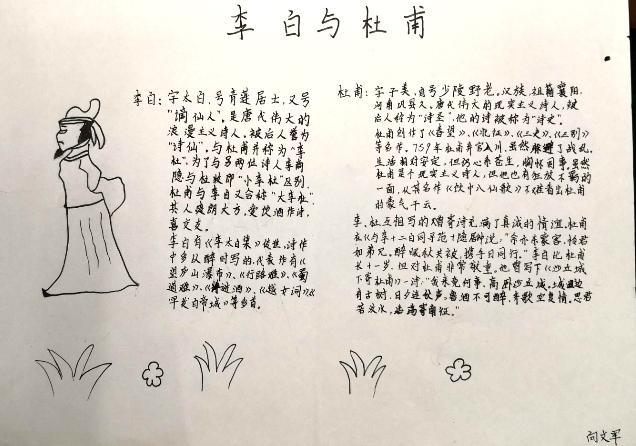 李白与杜甫
李白：字太白，号青莲居士，又号
“谪仙人”，是唐代伟大的
浪漫主义诗人，被后人誉为
“诗仙”，与杜甫并称为“李
杜”，为了与另两位诗人李商
隐与杜牧即“小李杜”区别，
杜甫与李白又合称“大李杜”，
其人爽朗大方，爱饮酒作诗，
喜交友。
李白有《李太白集》传世，诗作
中多以醉时写的，代表作有《
望庐山瀑布》、《行路难》、《蜀
道难》、《将进酒》、《越女词》、《
早发白帝城》等多首。
杜甫：字子美，自号少陵野老。汉族，祖籍襄阳，
河南巩县人。唐代伟大的现实主义诗人，被
后人称为“诗圣”，他的诗被称为“诗史”。
杜甫创作了《春望》、《北征》、《三吏》、《三别》
等名作。759年杜甫弃官入川，虽然躲避了战乱，
生活相对安定，但仍心系苍生，胸怀国事。虽然
杜甫是个现实主义诗人，但他也有狂放不羁的
一面，从其名作《饮中八仙歌》不难看出杜甫
的豪气干云。
李、杜互相写的赠寄诗充满了真诚的情谊，杜甫
在《与李十二白同寻范十隐居》中说：“余亦东蒙客，怜君
如弟兄。醉眠秋共被，携手日同行。”李白比杜甫
长十一岁，但对杜甫非常敬重，他曾写下《沙丘城
下寄杜甫》一诗：“我来竟何事，高卧沙丘城。城边
有古树，日夕连秋声。鲁酒不可醉，齐歌空复情。思君
若汶水，浩荡寄南征。”
向文军